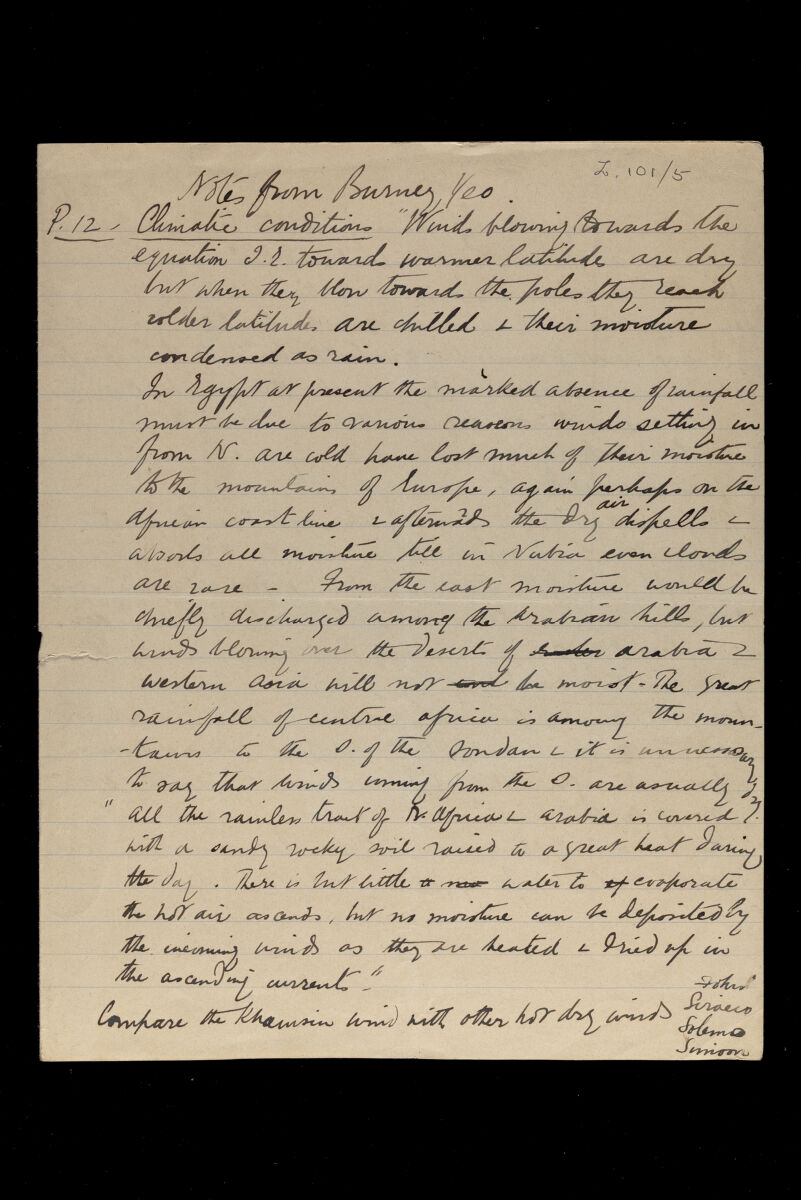 Z. 101/5
Notes from Burney Yeo.
P. 12 - Climatic conditions "Winds blowing towards the
equation I.E. towards warmer latitude are dry
but when they blow towards the poles they reach
colder latitudes are chilled & their moisture
condensed as rain.
In Egypt at present the marked absence of rainfall
must be due to various reasons winds setting in
from N. are cold have lost much of their moisture
to the mountains of Europe, again perhaps on the
African coast line & afterwards the dry air dispells &
absorbs all moisture till in Nubia even clouds
are rare - From the east moisture would be
chiefly discharged among the Arabian hills, but
winds blowing over the deserts of Arabia &
western Asia will not and be moist - The great
rainfall of central Africa is among the moun-
-tains to the S. of the Soudan & it is unnecessary
to say that winds coming from the S. are usually dry.
" All the rainless tract of N. Africa & Arabia is covered
with a sandy rocky soil raised to a great heat during
the day. There is but little water to of evaporate
the hot air ascends, but no moisture can be deposited by
the incoming winds as they are heated & dried up in
the ascending currents -"
Compare the Khamsin wind with other hot dry winds
Fohn
Sirocco
Solemo
Simoon